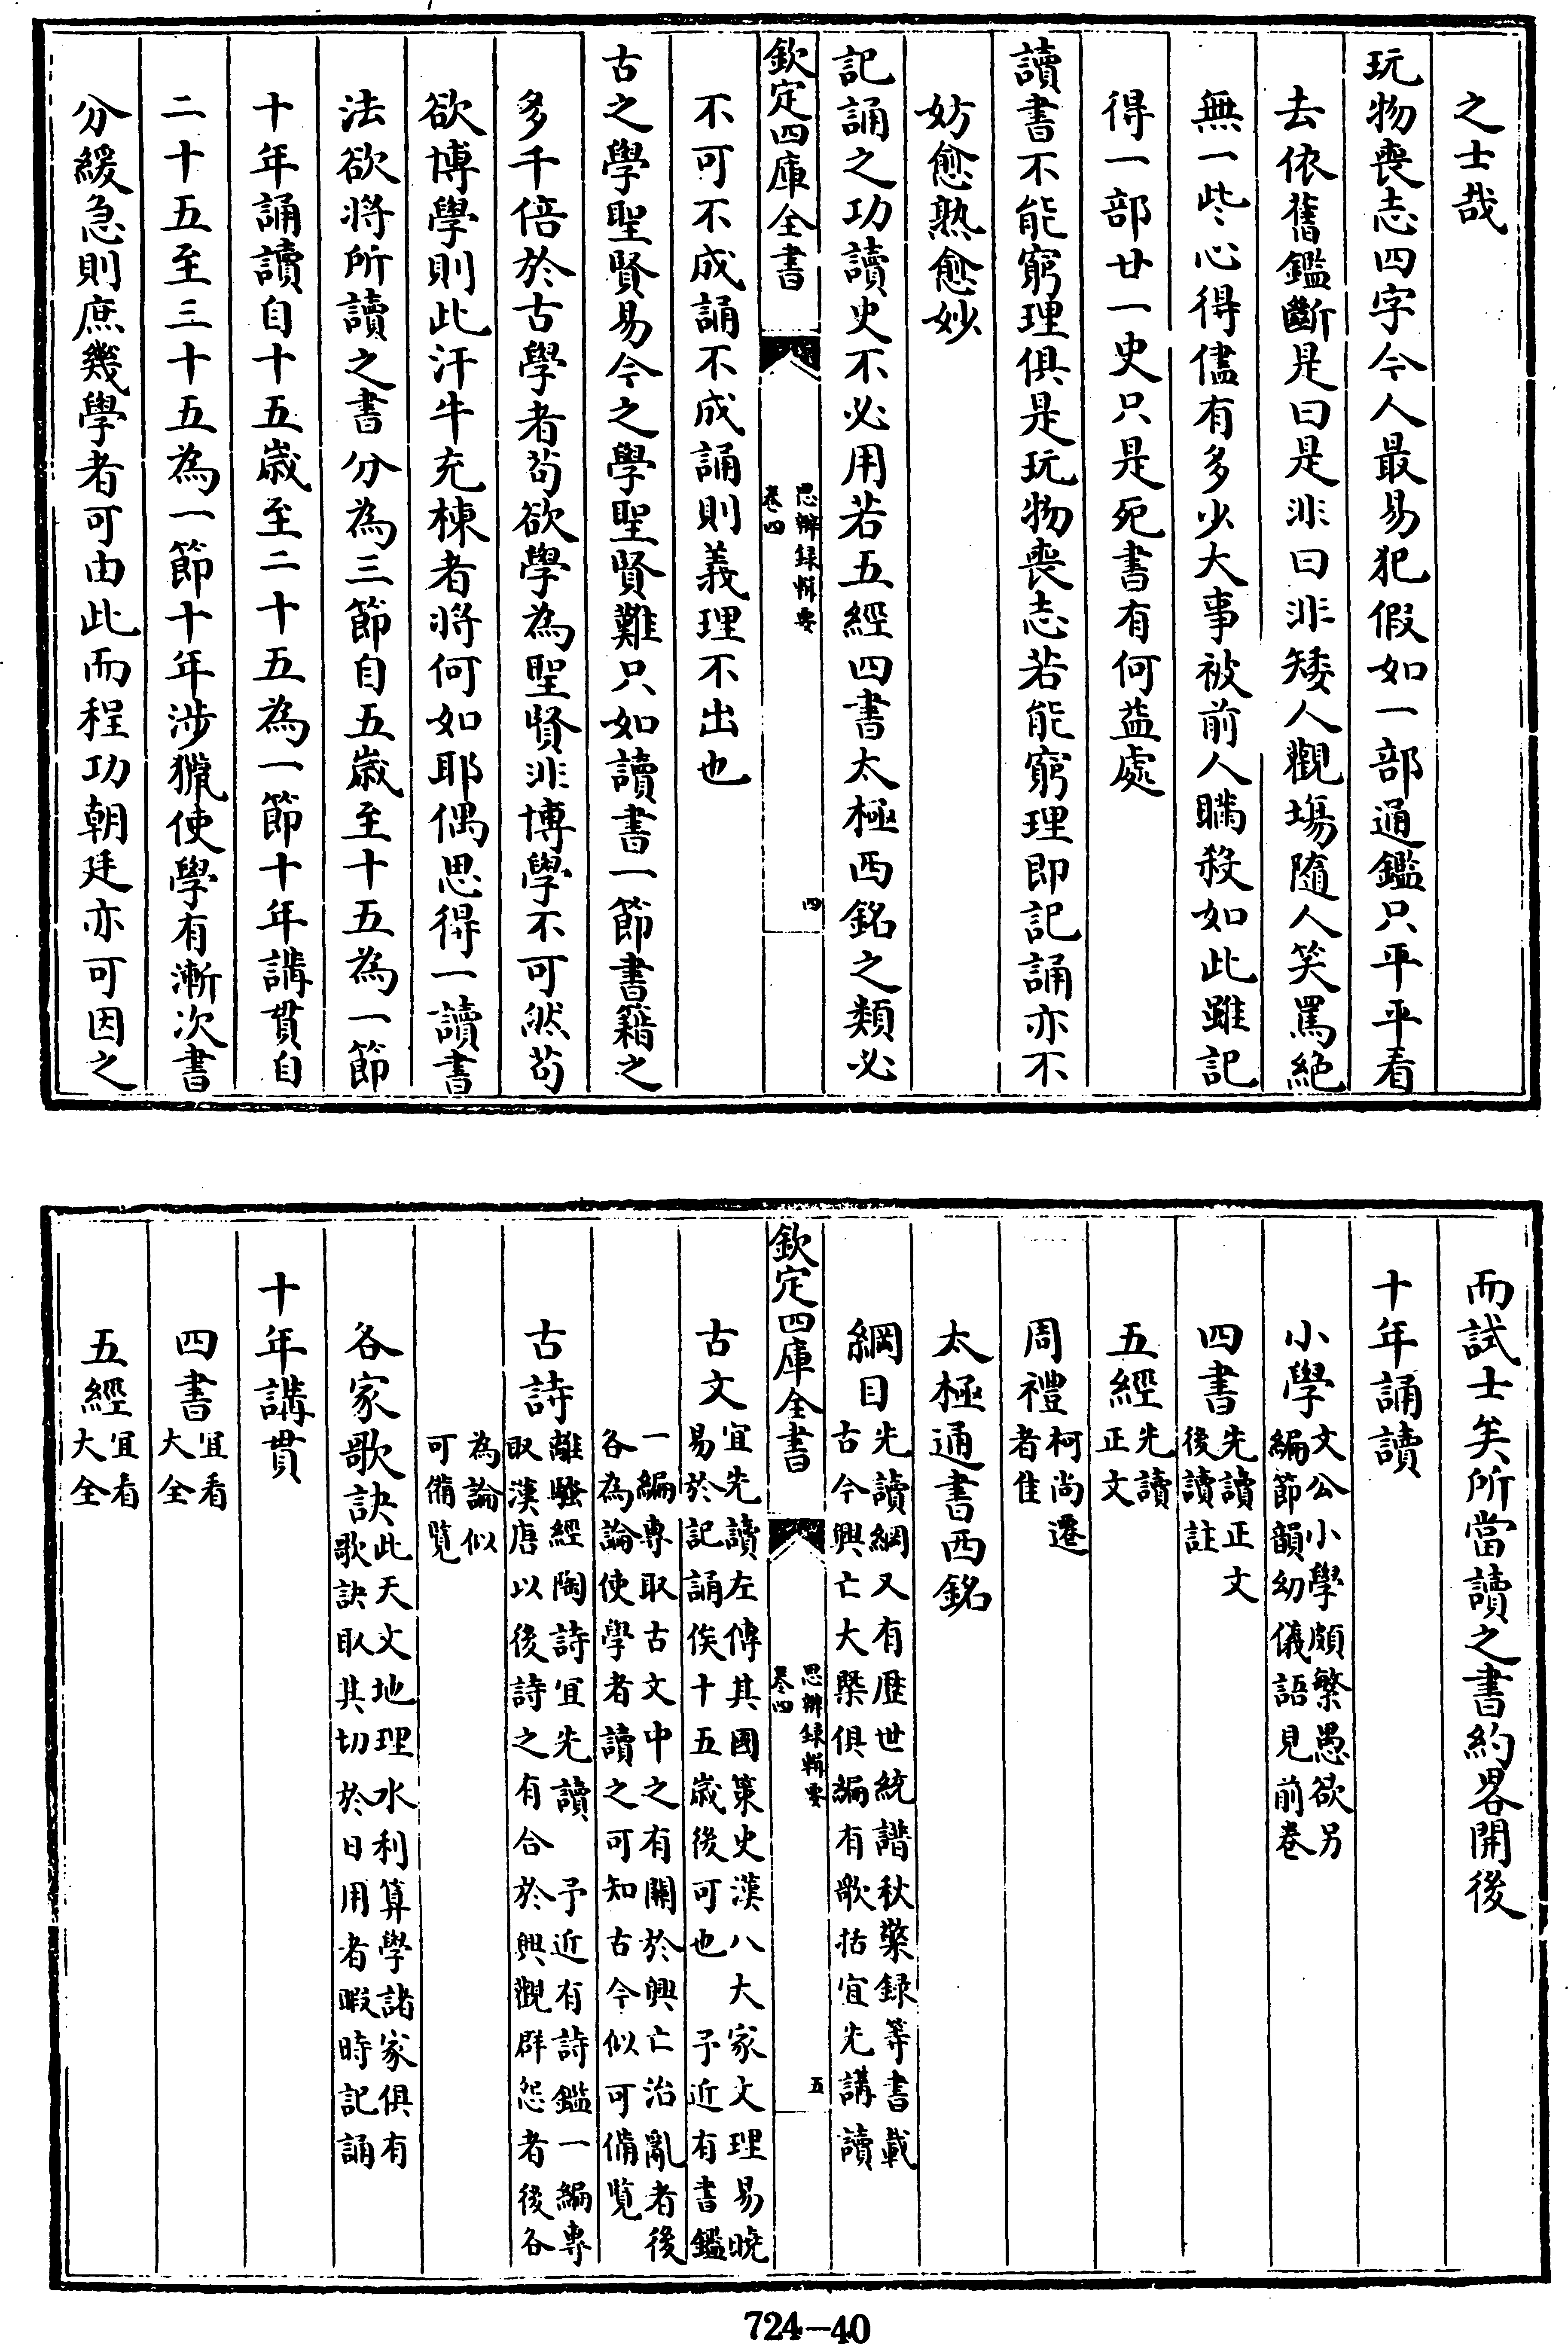 之士哉
玩物喪志四字今人最易犯假如一部通鑑只平平看
去依舊鑑斷是曰是非曰非矮人觀場隨人笑罵絕
無一些心得儘有多少大事被前人瞞殺如此雖記
得一部廿一史只是死書有何益處
讀書不能窮理俱是玩物喪志若能窮理即記誦亦不
妨愈熟愈妙
記誦之功讀史不必用若五經四書太極西銘之類必
欽定四庫全書
思辨録輯要
卷四
四
不可不成誦不成誦則義理不出也
古之學聖賢易今之學聖賢難只如讀書一節書籍之
多千倍於古學者苟欲學為聖賢非博學不可然苟
欲博學則此汗牛充棟者將何如耶偶思得一讀書
法欲將所讀之書分為三節自五歲至十五為一節
十年誦讀自十五歲至二十五為一節十年講貫自
二十五至三十五為一節十年涉獵使學有漸次書
分緩急則庶幾學者可由此而程功朝廷亦可因之
而試士矣所當讀之書約畧開後
十年誦讀
小學文公小學頗繁愚欲另
編節韻幼儀語見前卷
四書先讀正文
後讀註
五經先讀
正文
周禮柯尚遷
者佳
太極通書西銘
綱目先讀綱又有歷世統譜秋檠録等書載
古今興亡大槩俱編有歌括宜先講讀
欽定四庫全書
思辨録輯要
卷四
五
古文宜先讀左傳其國策史漢八大家文理易曉
易於記誦俟十五歲後可也 予近有書鑑
一編專取古文中之有關於興亡治亂者後
各為論使學者讀之可知古今似可備覽
古詩離騷經陶詩宜先讀 予近有詩鑑一編專
取漢唐以後詩之有合於興觀群怨者後各
為論似
可備覽
各家歌訣此天文地理水利算學諸家俱有
歌訣取其切於日用者暇時記誦
十年講貫
四書宜看
大全
五經宜看
大全
724-40